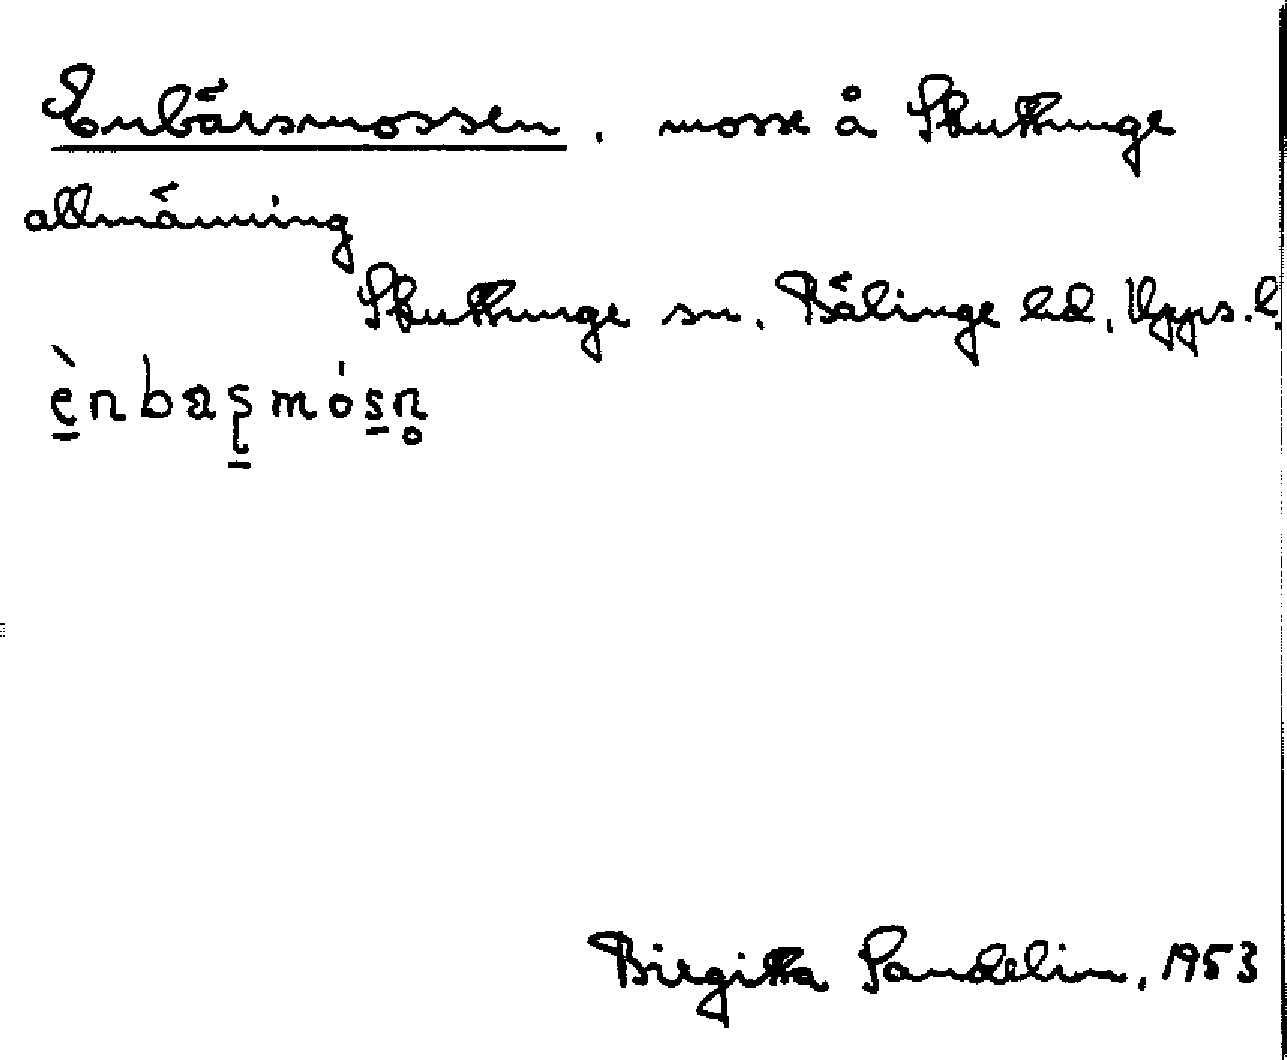 Enbärsmossen. mosse å Skuttunge
allmänning
Skuttunge sn. Bälinge hd, Upps. l.
Birgitta Sandelin, 1953